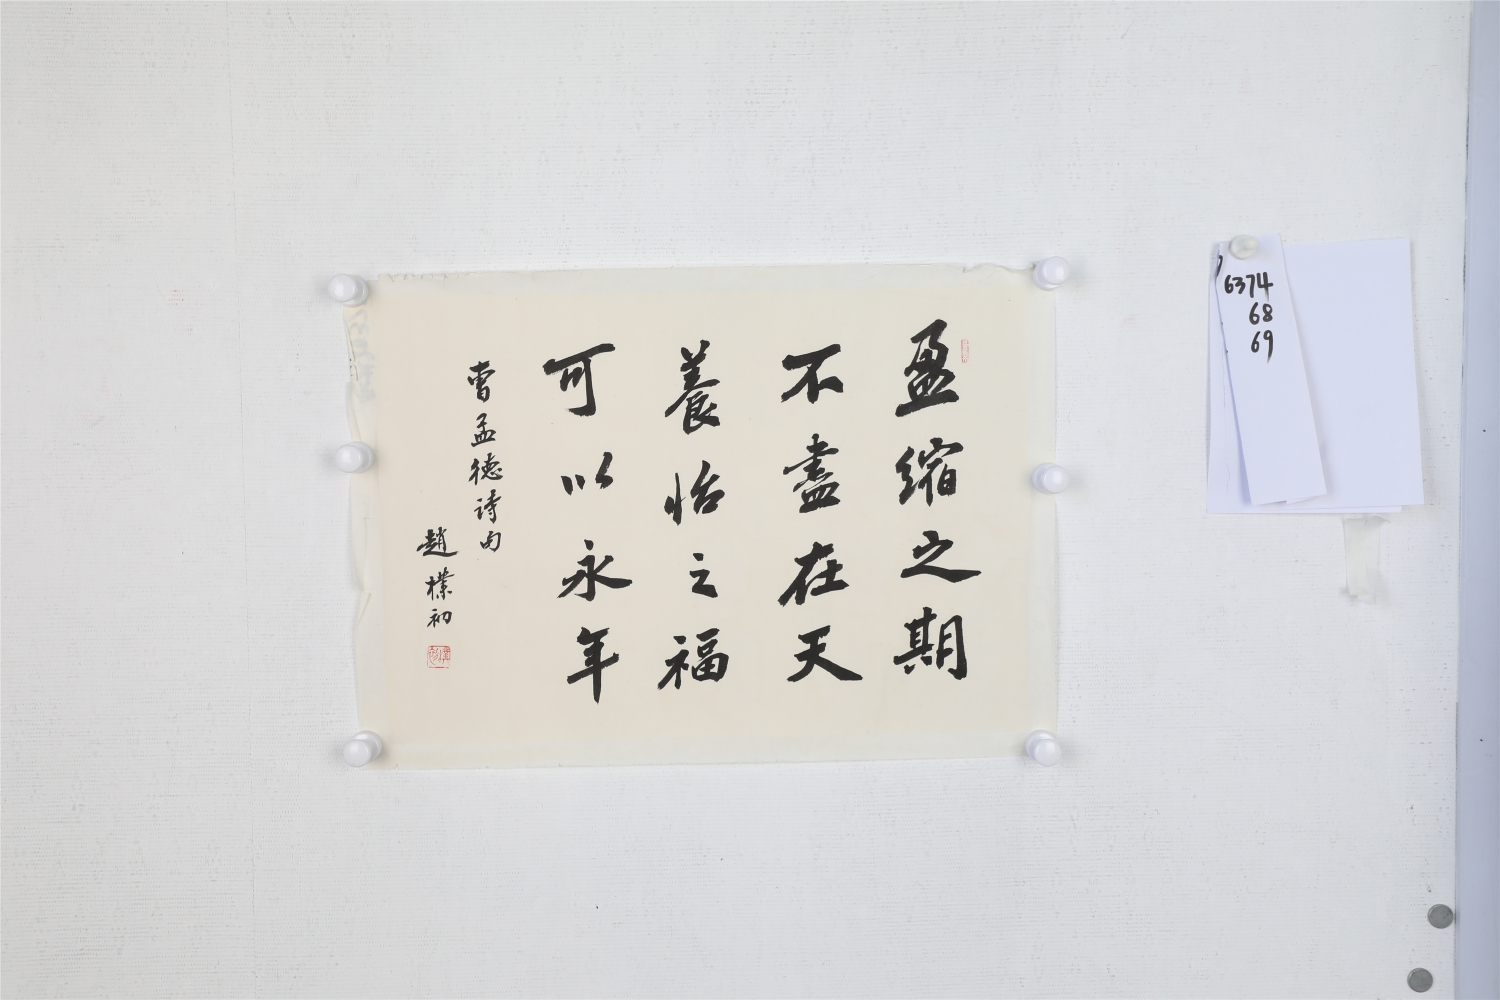 盈縮之期
不盡在天
養怡之福
可以永年
曹孟德诗句
趙樸初
6374
68
69